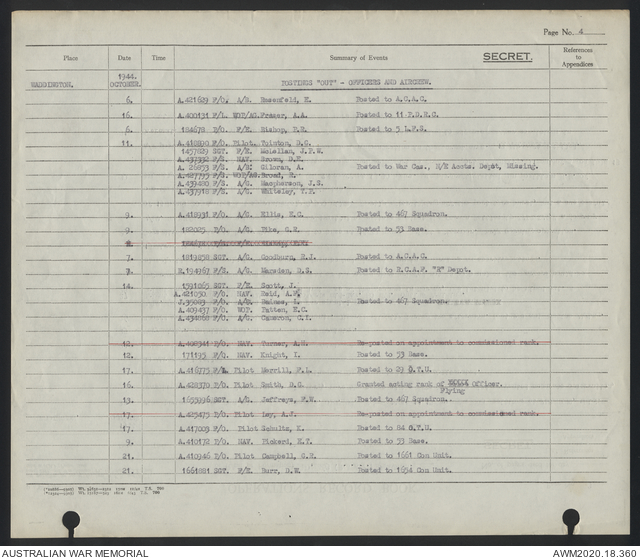 Page No. 4
Place Date Time Summary of Events SECRET. References to Appendices
1944.
WADDINGTON. OCTOBER. POSTINGS "OUT" - OFFICERS AND AIRCREW.
6. A.421629 F/O. A/B. Rosenfeld, E. Posted to A.C.A.C.
16. A.400131 F/L WOP/AG. Fraser, A.A. Posted to 11 P.D.R.C.
6. 184679 P/O. F/E. Bishop, Posted to 5 L.F.S.
11. A.418890 F/O. Pilot. Tointon, D.C.
1457829 SGT. F/E. McLellan, J.F.W.
A.437332 F/S. NAV. Brown, D.E.
A. 26853 F/S. A/B. Giloran, A. Posted to War Cas., N/E Accts. Depôt, Missing.
A.427795 F/S. WOP/AG. Broad, R.
A.439480 F/S. A/G. Macpherson, J.S.
A.437918 F/S. A/G. Whiteley, T.P.
9. A.418931 F/O. A/G. Ellis, K.C. Posted to 467 Squadron.
9. 182025 P/O. A/G. Pike, G.R. Posted to 53 Base.
7. 1819258 SGT. A/G. Goodburn, R.J. Posted to A.C.A.C.
7. R.194967 F/O. A/G. Marsden, D.G. Posted to R.C.A.F. "R" Depot.
14. 1591065 SGT. F/E. Scott, J.
A.421030 F/O. NAV. Reid, A.F.
J.35083 F/O. A/B. Haines, I. Posted to 467 Squadron.
A.409437 F/O. WOP. Tatten, E.C.
A.434068 F/O. A/G. Cameron, C.I.
12. A.408341 P/O. NAV. Turner, A.H. Re-posted on appointment to commissioned rank.
12. 171195 F/O. NAV. Knight, I. Posted to 53 Base.
17. A.416775 F/L Pilot Merrill, P.L. Posted to 29 O.T.U.
16. A.428370 P/O. Pilot Smith, D.G. Granted acting rank of Officer.
Flying
13. 1655996 SGT. A/G. Jeffreys, F.W. Posted to 467 Squadron.
17. A.425475 P/O. Pilot Ley, A.J. Re-posted on appointment to commissioned rank.
17. A.417009 F/O. Pilot Schultz, K. Posted to 84 O.T.U.
9. A.410172 F/O. NAV. Pickerd, H.T. Posted to 53 Base.
21. A.410946 F/O. Pilot Campbell, G.R. Posted to 1661 Con Unit.
21. 1661881 SGT. F/E. Burr, D.W. Posted to 1654 Con Unit.
AUSTRALIAN WAR MEMORIAL AWM2020.18.360